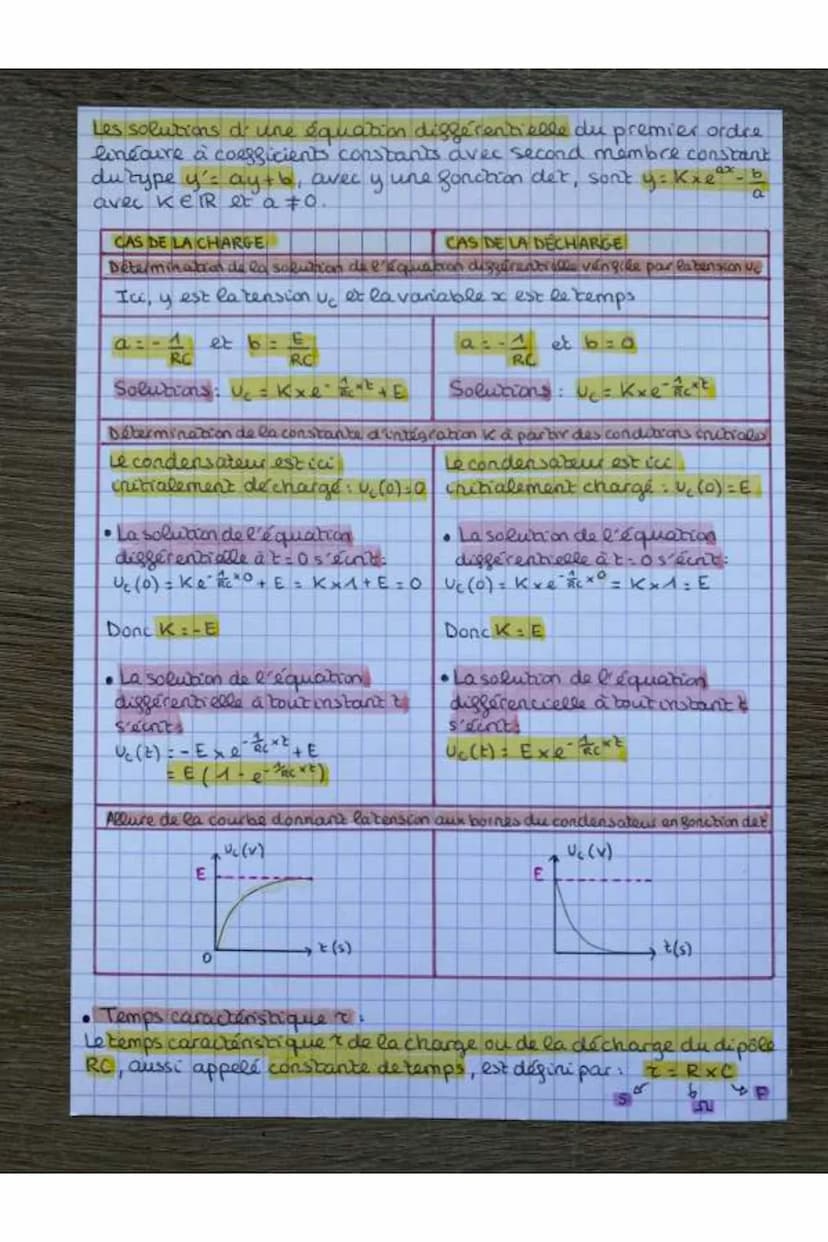 Les solutions d'une équation différentielle du premier ordre
linéaire à coefficients constants avec second membre constant
du type y' = ay + b, avec y une fonction de x, sont y = K × e^ax - b/a
avec K ∈ ℝ et a ≠ 0.
CAS DE LA CHARGE
CAS DE LA DÉCHARGE
Détermination de la solution de l'équation différentielle vérifiée par la tension uc
Ici, y est la tension uc et la variable x est le temps
a = - 1/RC et b = E/RC
Solutions : Uc = K × e^(- 1/RC × t) + E
a = - 1/RC et b = 0
Solutions : Uc = K × e^(- 1/RC × t)
Détermination de la constante d'intégration K à partir des conditions initiales
Le condensateur est ici
initialement déchargé : Uc(0) = 0
• La solution de l'équation
différentielle à t = 0 s'écrit :
Uc(0) = K e^(- 1/RC × 0) + E = K × 1 + E = 0
Donc K = - E
• La solution de l'équation
différentielle à tout instant t
s'écrit :
Uc(t) = - E × e^(- 1/RC × t) + E
= E (1 - e^(- 1/RC × t))
Le condensateur est ici
initialement chargé : Uc(0) = E
• La solution de l'équation
différentielle à t = 0 s'écrit :
Uc(0) = K × e^(- 1/RC × 0) = K × 1 = E
Donc K = E
• La solution de l'équation
différencielle à tout instant t
s'écrit :
Uc(t) = E × e^(- 1/RC × t)
Allure de la courbe donnant la tension aux bornes du condensateur en fonction de t
Uc (V)
E
0
t (s)
Uc (V)
E
t (s)
• Temps caractéristique τ :
Le temps caractéristique τ de la charge ou de la décharge du dipôle
RC, aussi appelé constante de temps, est défini par : τ = R × C
S Ω F